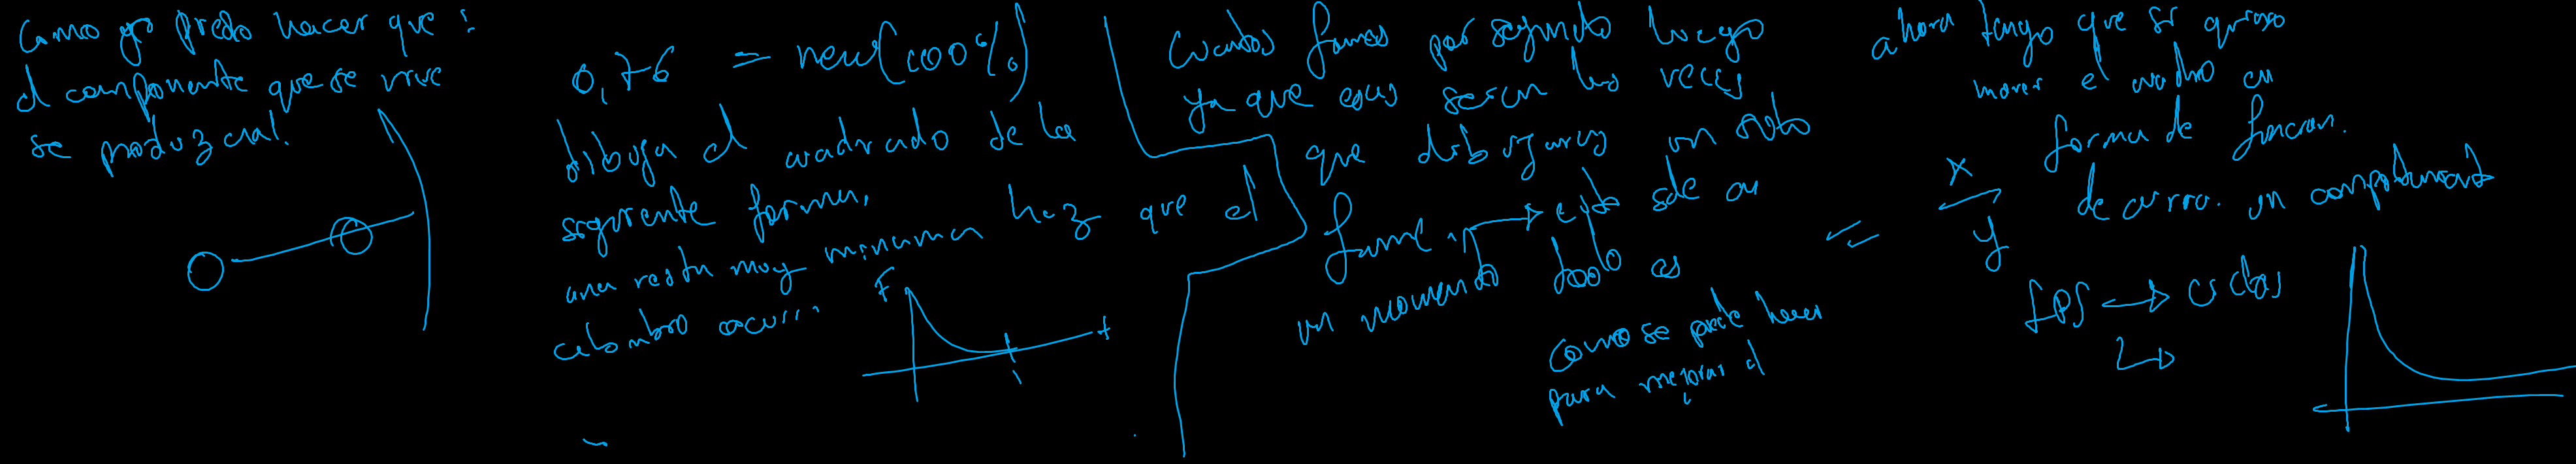 Como yo puedo hacer que:
el componente que se
se produzca
0,76 = new(100%)
dibuja el cuadrado de la
siguiente forma,
una resta muy minima haz que el
f
t
1
Cuantos frames por segundo luego
ya que esas seran las veces
que dibujaras un solo
frame. esto sale en
un momento
como se puede hacer
para mejorar el
=
x
y
ahora tengo que si quiero
mover el cuadro en
forma de funcion.
de curva. un comportamiento
FPS ↔ ciclos